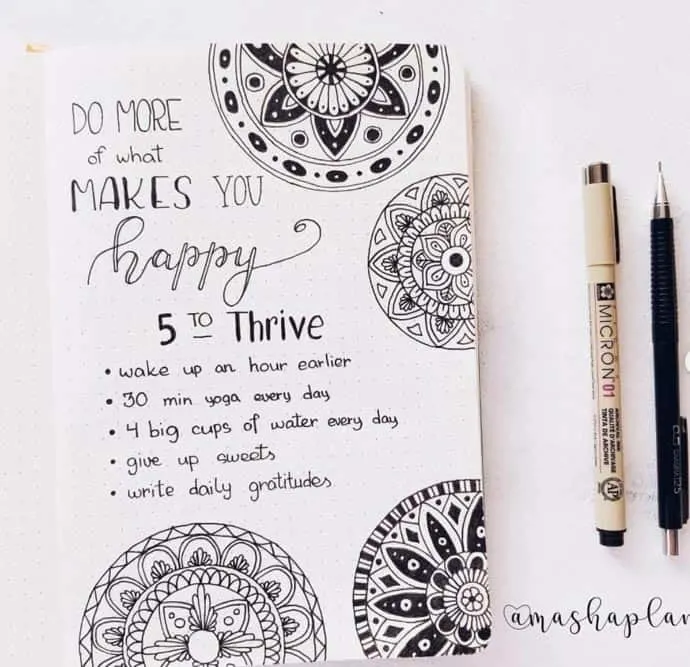 DO MORE
of what
MAKES YOU
happy
5 TO Thrive
• wake up an hour earlier
• 30 min yoga every day
• 4 big cups of water every day
• give up sweets
• write daily gratitudes
MICRON 01
QUALITÉ D'ARCHIVAGE
TINTA DE ARCHIVO
AP
amashaplan